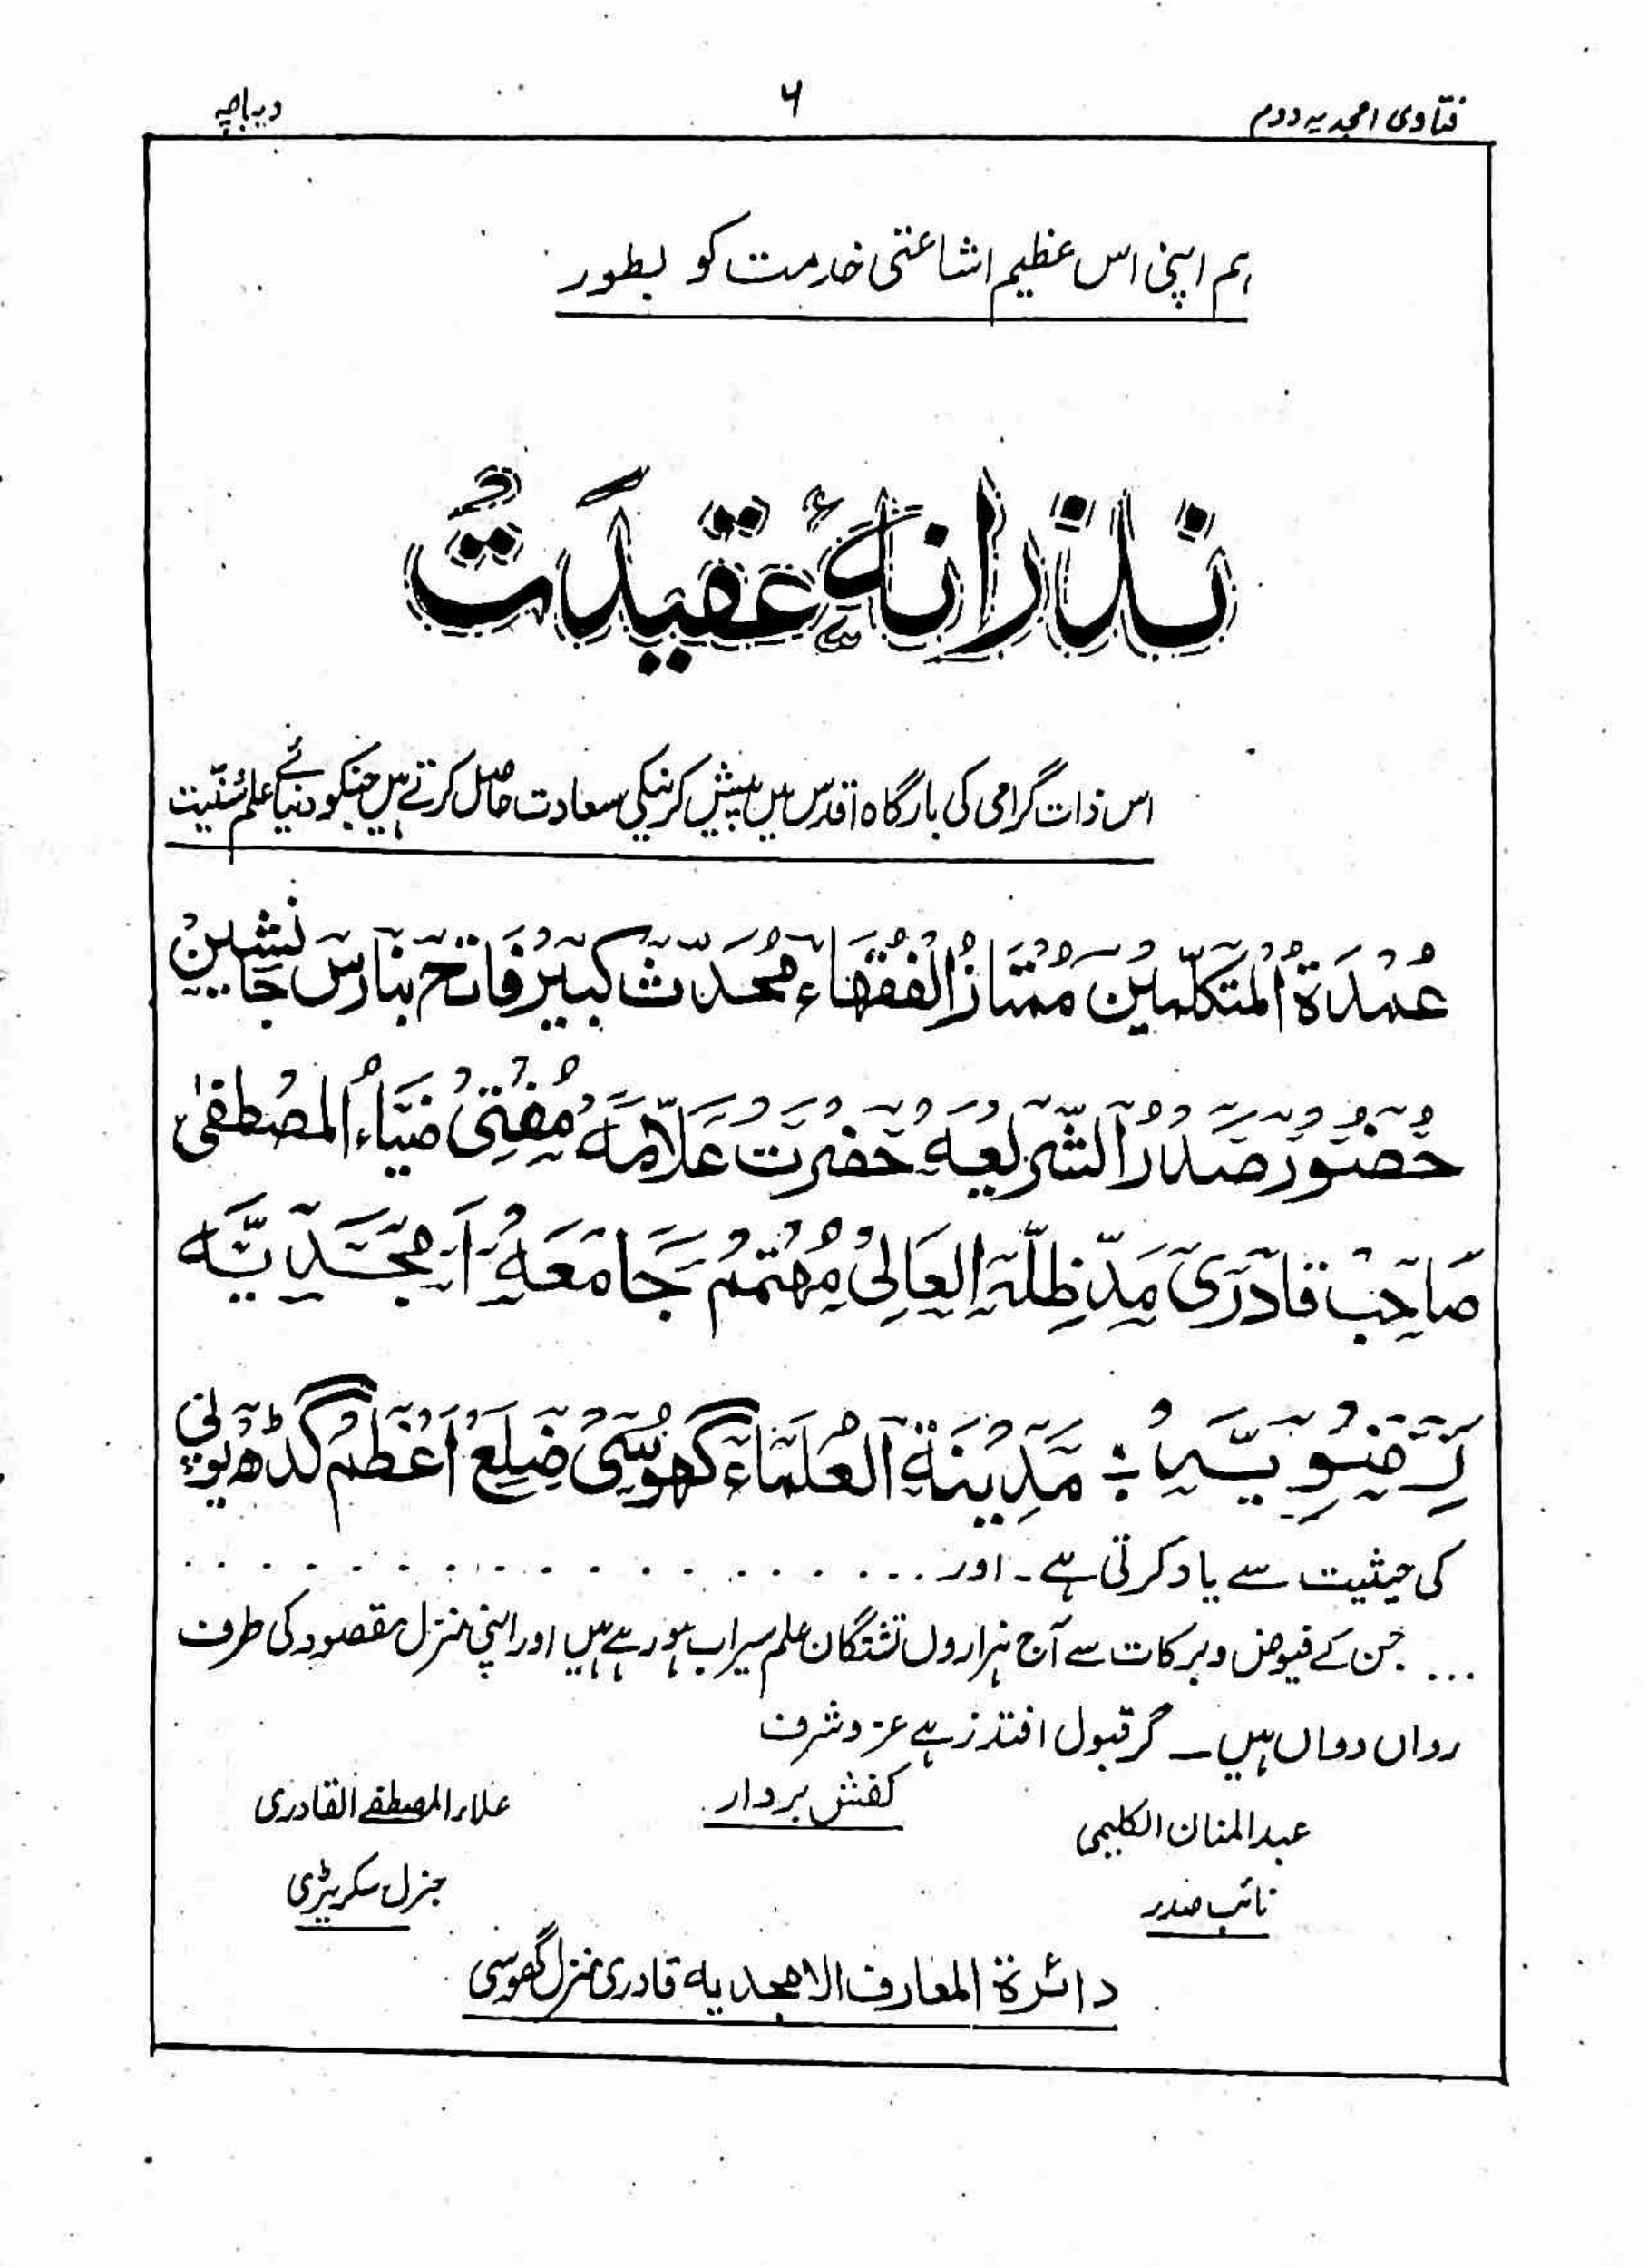 فتاوی امجدیہ دوم
۶
دیباچہ
ہم اپنی اس عظیم اشاعتی خدمت کو بطور
نذرانۂ عقیدت
اس ذات گرامی کی بارگاہ اقدس میں پیش کرنیکی سعادت حاصل کرتے ہیں جنکو دنیائے علم سُنّیت
عُمْدَۃُ الْمُتَکَلِّمِیْن مُمْتَازُ الْفُقَهَاء مُحَدِّث کَبِیْر فَاتِح بَنَارَس جَانَشِیْن
حُضُوْر صَدْرُ الشَّرِیْعَہ حَضْرَت عَلَّامَہ مُفْتِیْ ضِیَاءُ الْمُصْطَفٰی
صَاحِبْ قَادَرِیْ مَدَّ ظِلَّہُ الْعَالِیْ مُهْتَمِمْ جَامِعَہ اَمْجَدِیَّہ
رِضْوِیَّہ : مَدِیْنَۃُ الْعُلَمَاء گھوسی ضلع اعظم گڈھ یوپی
کی حیثیت سے یاد کرتی ہے ۔ اور . . . . . . . . . . . . . . . . .
... جن کے فیوض و برکات سے آج ہزاروں تشنگان علم سیراب ہو رہے ہیں اور اپنی منزل مقصود کی طرف
رواں دواں ہیں ــ گر قبول افتد زہے عز و شرف
کفش بردار
عبدالمنان الکلیمی
علاء المصطفے القادری
نائب صدر
جنرل سکریٹری
دائرۃ المعارف الامجدیہ قادری منزل گھوسی